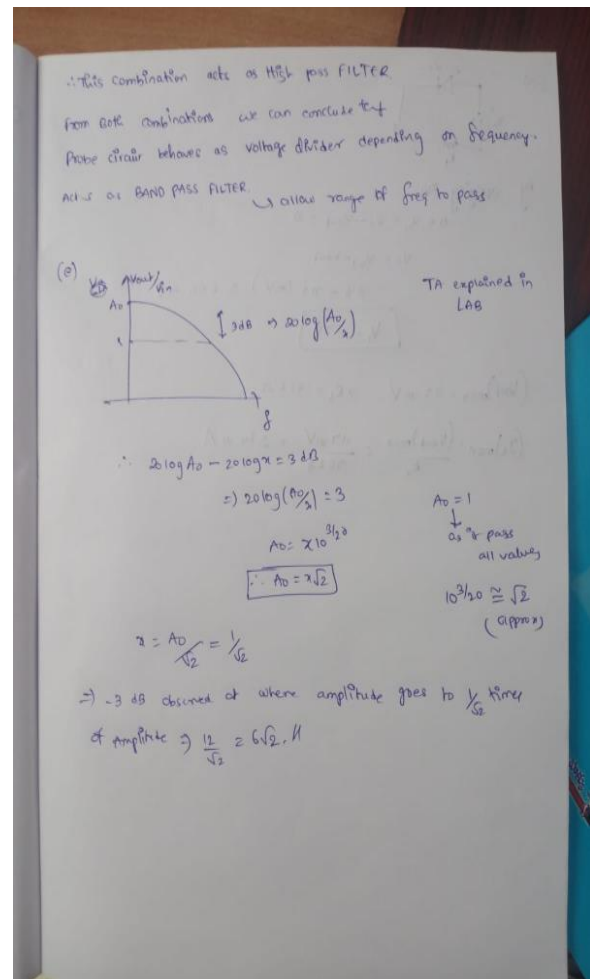 ∴ This combination acts as High pass FILTER
From Both combinations we can conclude that
Probe circuit behaves as voltage divider depending on frequency.
Acts as BAND PASS FILTER.
↳ allow range of freq to pass
(e) Avout/Vin
TA explained in
LAB
A0
3dB => 20log(A0/x)
x
f
∴ 20logA0 - 20logx = 3dB
=) 20log(A0/x) = 3
A0 = 1
A0 = x10^3/20
as it pass
all values
∴ A0 = x√2
10^3/20 ≅ √2
(approx)
x = A0/√2 = 1/√2
=) -3 dB observed at where amplitude goes to 1/√2 times
of Amplitude =) 12/√2 = 6√2.